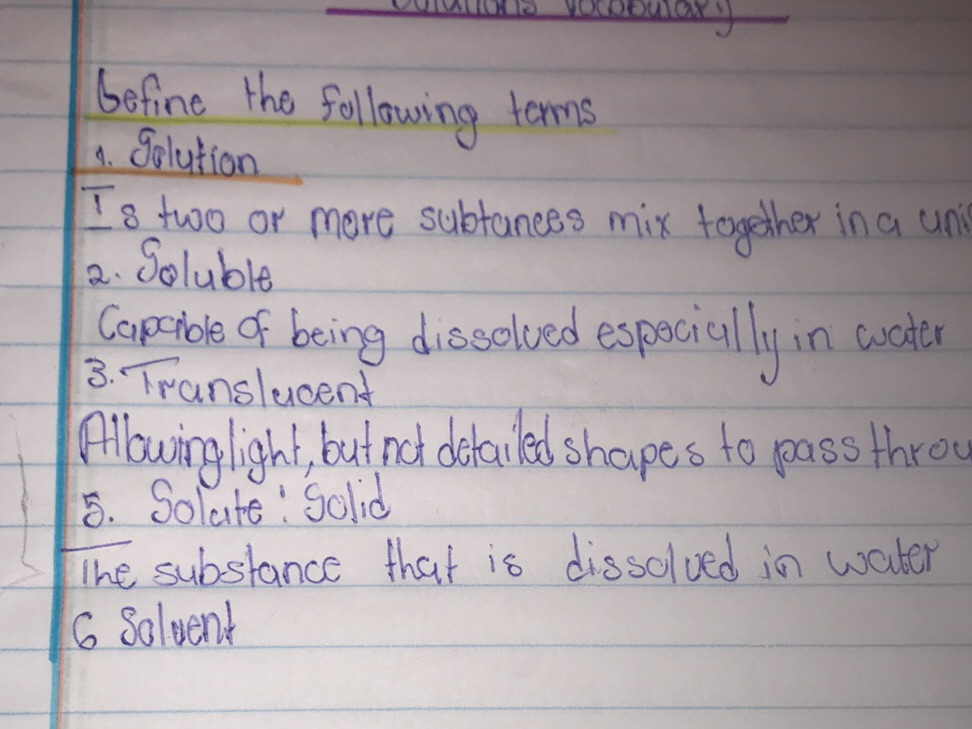 Solutions Vocabulary
Define the following terms
1. Solution
Is two or more subtances mix together in a
2. Soluble
Capable of being dissolved especially in water
3. Translucent
Allowing light, but not detailed shapes to pass
5. Solute: Solid
The substance that is dissolved in water
6 Solvent